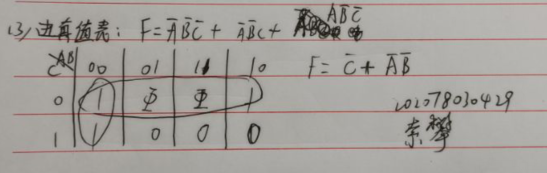 (3) 边真值表: F=A̅B̅C̅ + A̅B̅C + AB̅C̅
C AB 00 01 11 10 F = C̅ + A̅B̅
0 1 Φ Φ 1
1 1 0 0 0
202078030429